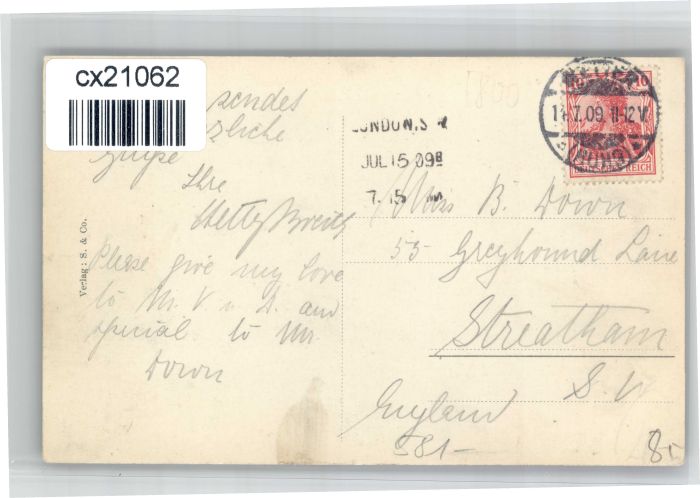 cx21062
sendes
herzliche
Grüße
Ihre
Hetty
Please give my love
to M. V u. A. and
special to Mr.
Down
Verlag: S. & Co.
1800
LONDON, S.W
JUL 15 09
7.15
14.7.09. 11-12V.
10
REICH
Miss B. Down
55 Greyhound Lane
Streatham
S. W
England
581-